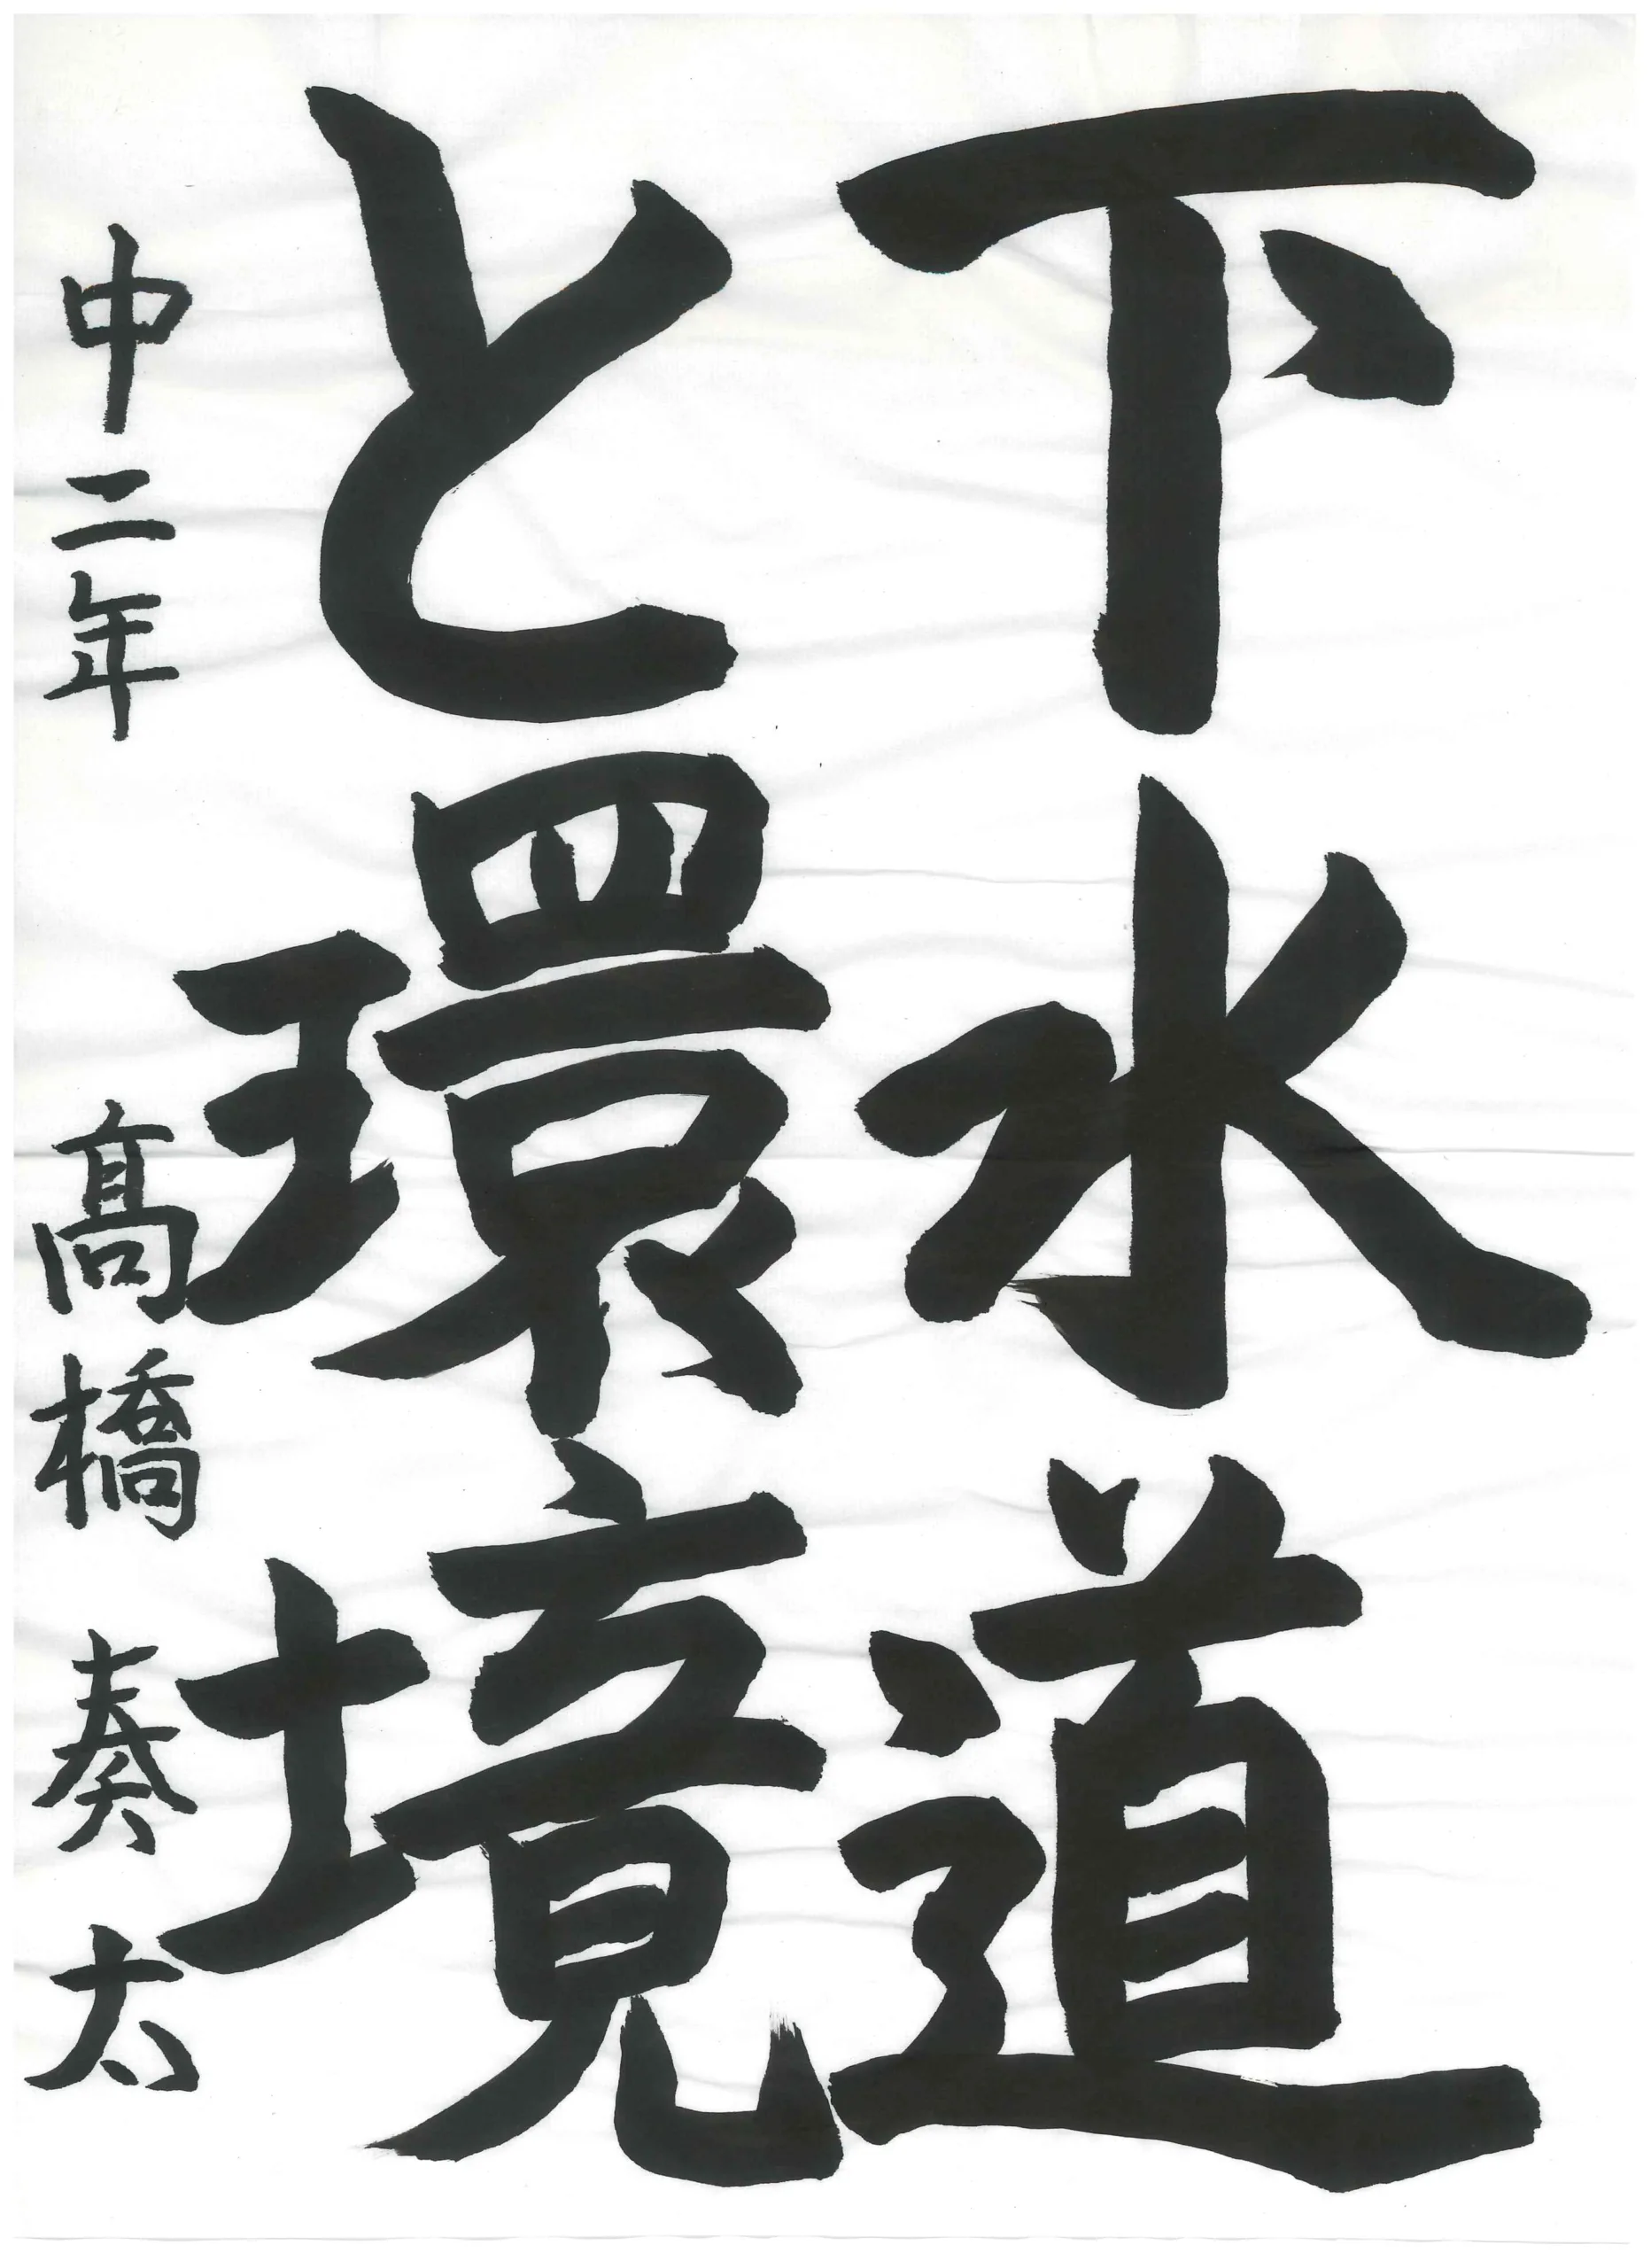 下水道
と環境
中二年 髙橋奏太